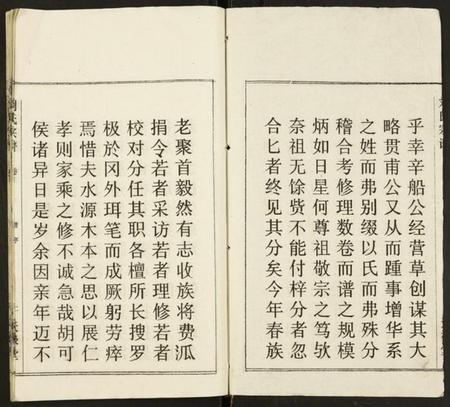 乎幸辛船公经营草创谋其大
略贯甫公又从而踵事增华系
之姓而弗别缀以氏而弗殊分
稽合考修理数卷而谱之规模
炳如日星何尊祖敬宗之笃欤
奈祖无馀赀不能付梓分者忽
合匕者终见其分矣今年春族
老聚首毅然有志收族将费泒
捐令若者采访若者理修若者
校对分任其职各檀所长搜罗
极於冈外珥笔而成厥躬劳瘁
焉惜夫水源木本之思以展仁
孝则家乘之修不诚急哉胡可
侯诸异日是岁余因亲年迈不